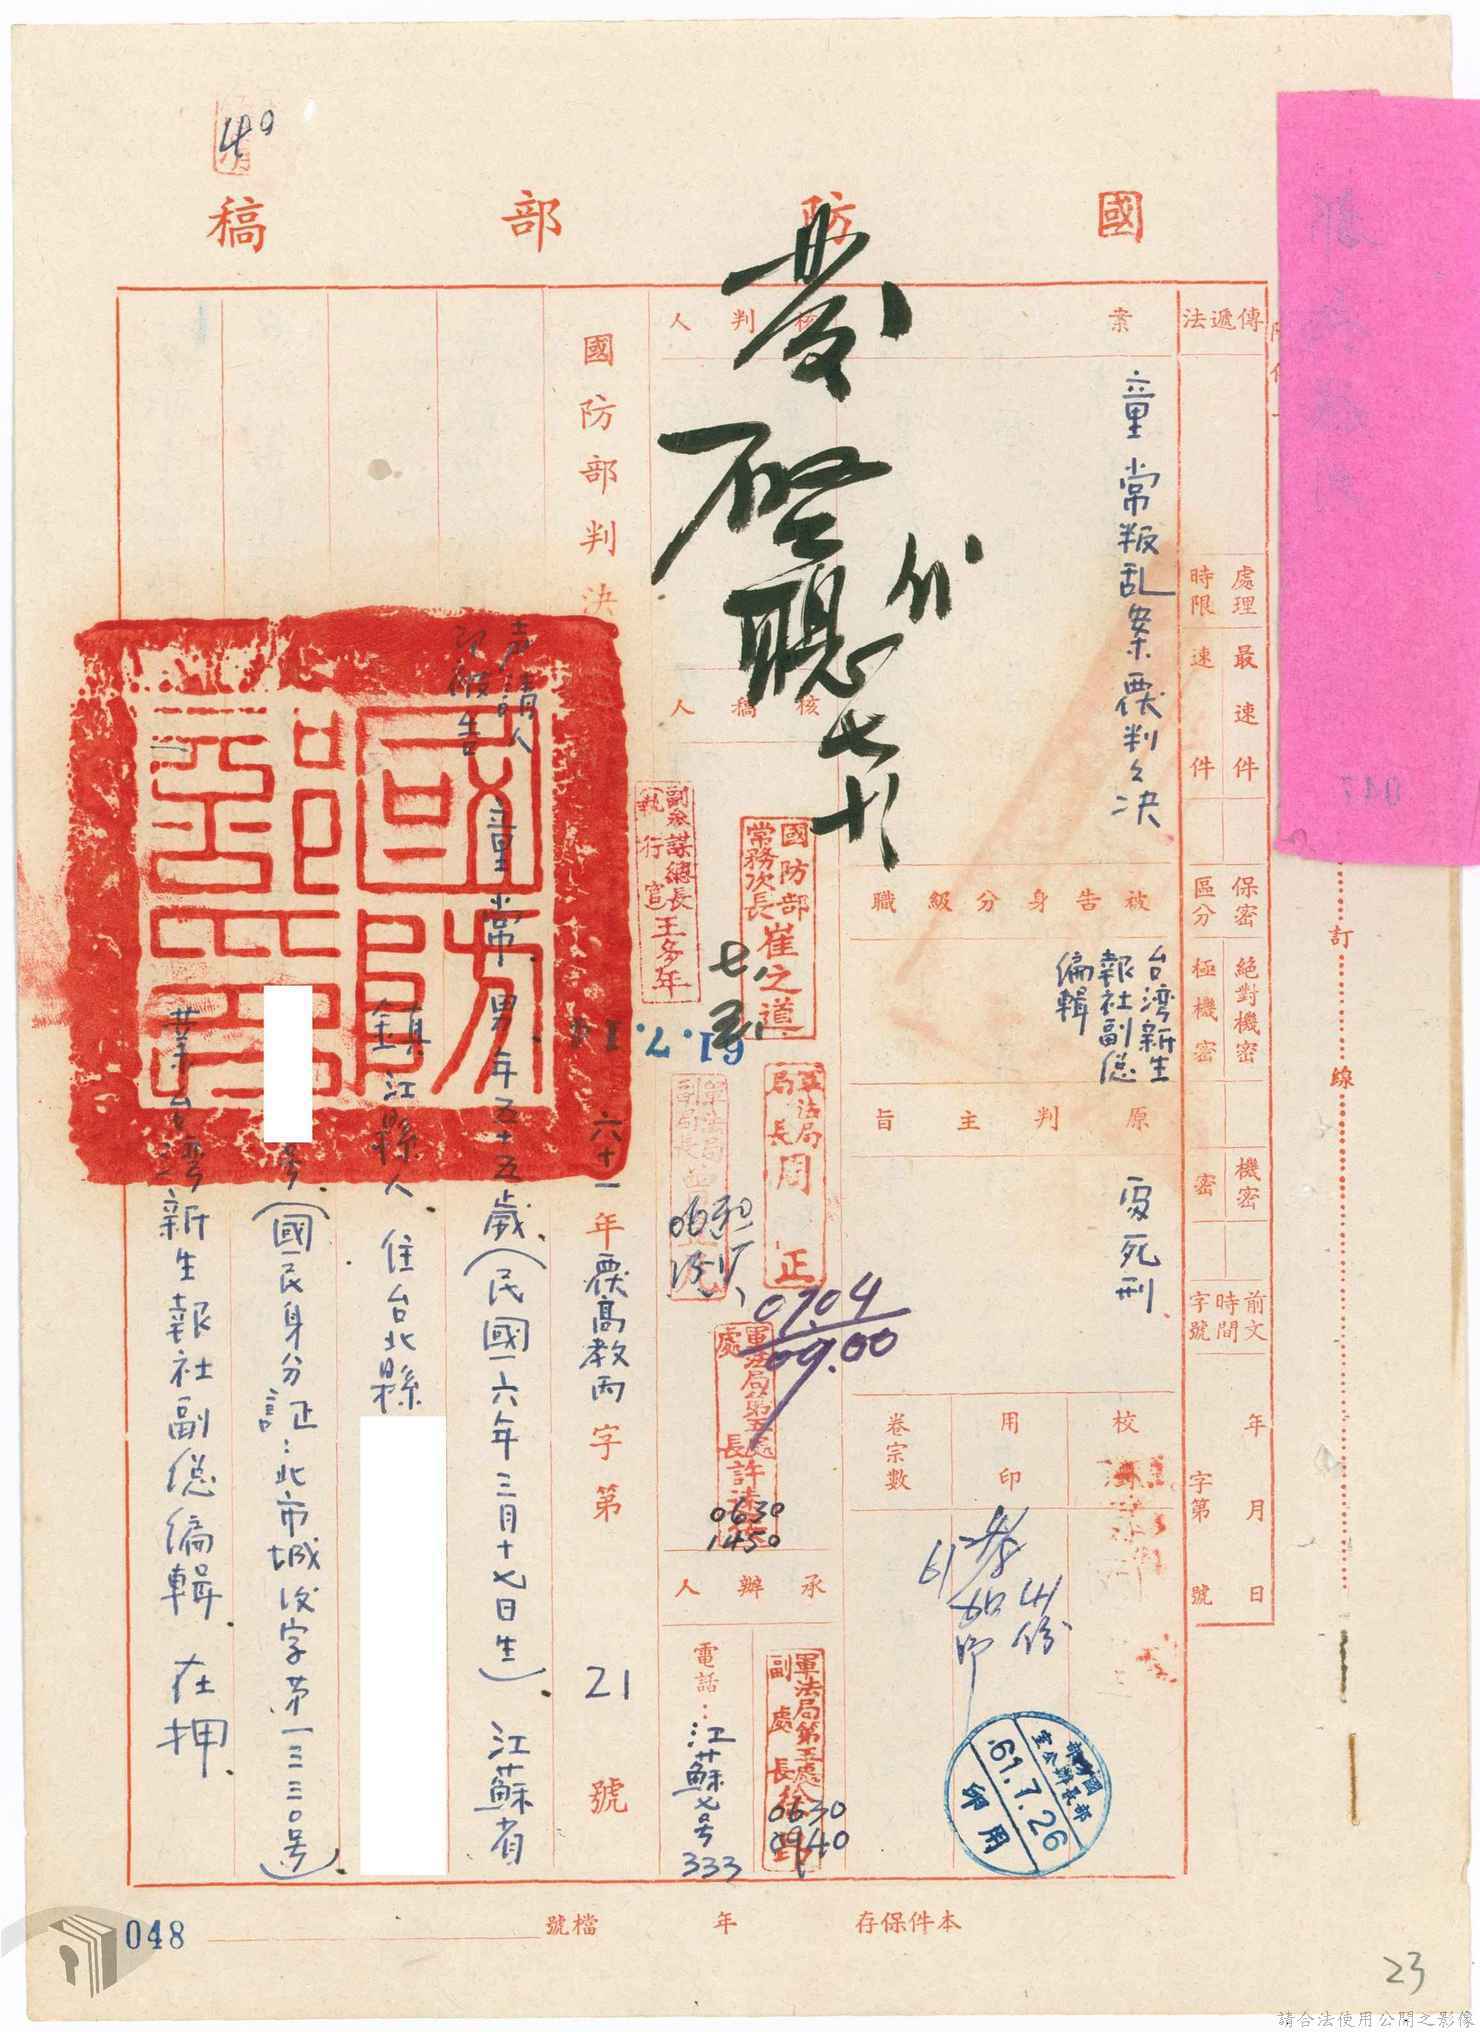 國防部稿
傳遞法
處理時限
最速件
速件
保密區分
絕對機密
極機密
機密
密
前文時間字號
年月日
字第號
案
童常叛乱案覆判之决
被告身分級職
台湾新生報社副總編輯
原判主旨
處死刑
校
用印
卷宗數
核判人
發
代
七
核稿人
國防部常務次長崔之道
副參謀總長(執行官)王多年
61.7.14
軍法局局長周正
07.04
09.00
軍法局第五處處長許
0630
1450
承辦人
軍法局第五處副處長徐
0630
0940
電話:江蘇七号333
國防部部長辦公室
61.7.26
印用
國防部判決
六十一年覆高教丙字第21號
声請人
即被告
童常 男 年五十五歲(民國六年三月十七日生) 江蘇省
鎮江縣人 住台北縣
号(國民身分証:北市城汶字第一三三〇号)
業台湾新生報社副總編輯 在押
國防部印
本件保存年
檔號
048
047
訂線
23
請合法使用公開之影像